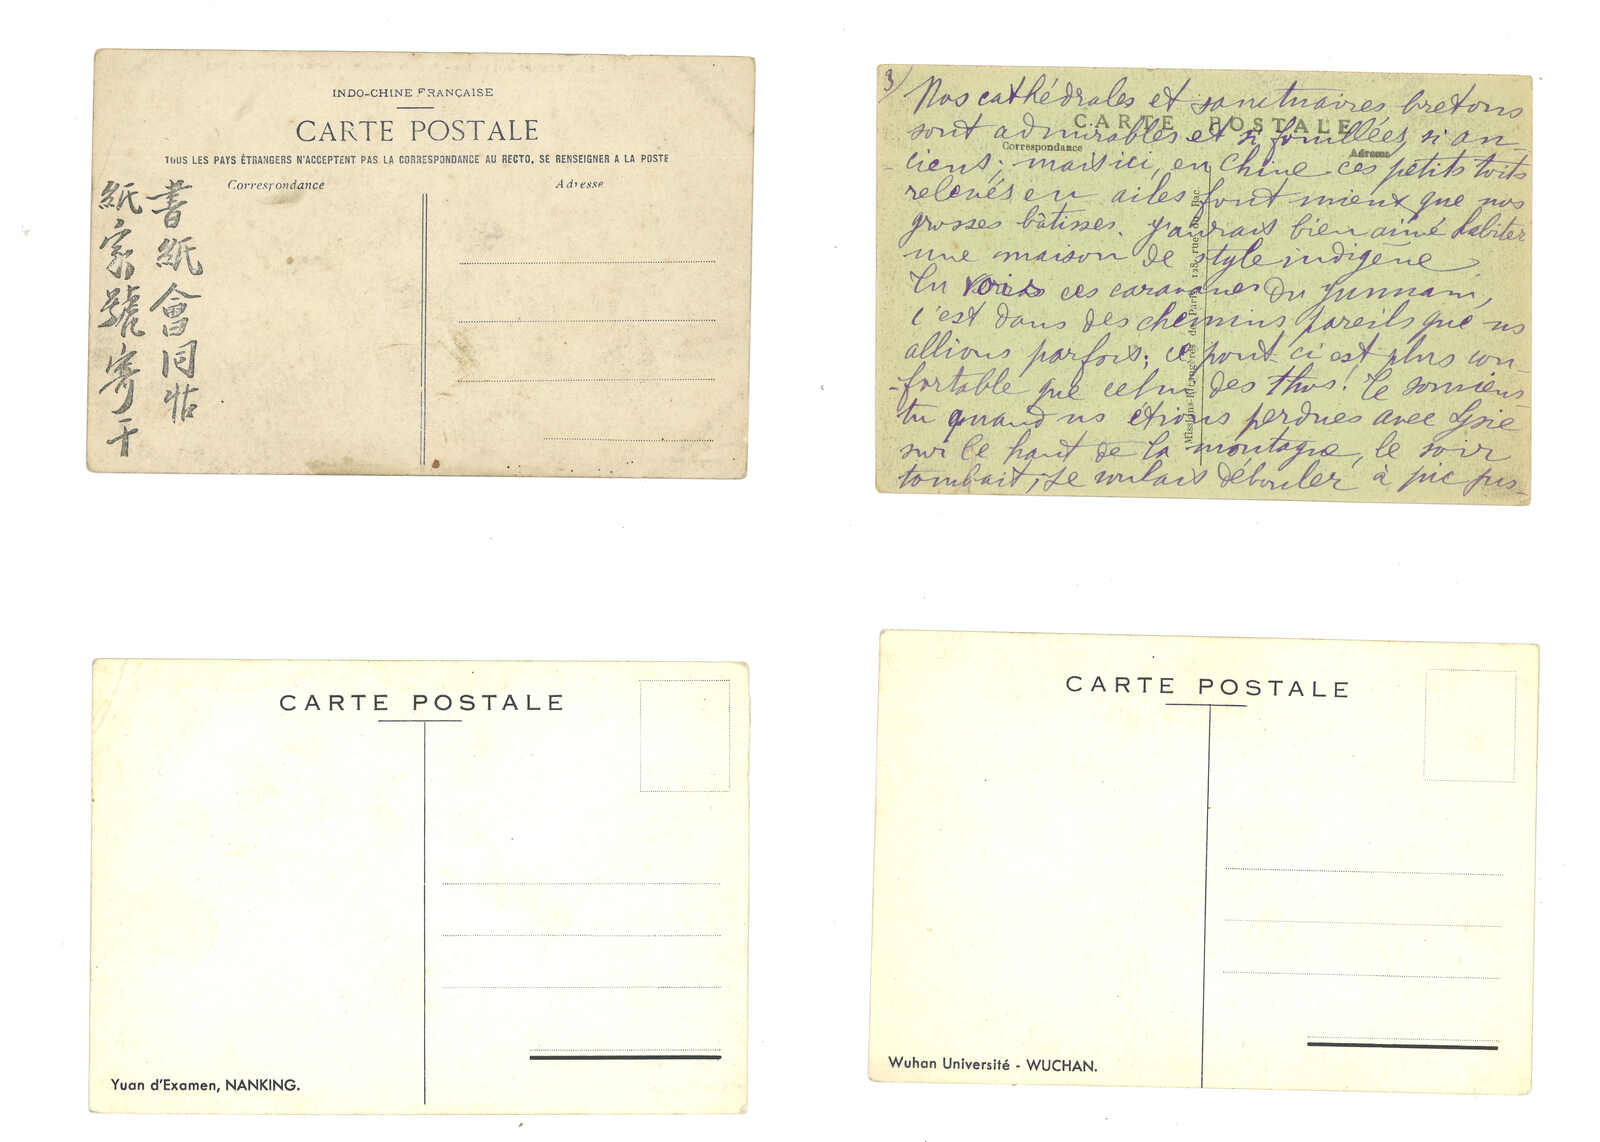 INDO-CHINE FRANÇAISE
CARTE POSTALE
TOUS LES PAYS ÉTRANGERS N'ACCEPTENT PAS LA CORRESPONDANCE AU RECTO, SE RENSEIGNER A LA POSTE
Correspondance
Adresse
書紙會同
紙宗號寄
3)
CARTE POSTALE
Correspondance
Adresse
Missions-Etrangères de Paris, 128, rue du Bac
Nos cathédrales et sanctuaires bretons
sont admirables et si fouillées, si an
ciens; mais ici, en Chine ces petits toits
relevés en ailes font mieux que nos
grosses bâtisses. J'aurais bien aimé habiter
une maison de style indigène
Tu vois ces caravanes du Yunnam,
c'est dans des chemins pareils que ns
allions parfois; ce pont-ci est plus con-
-fortable que celui des thos! Te souviens
tu quand ns étions perdues avec
sur le haut de la montagne, le soir
tombait, je voulais débouler à pic pus-
CARTE POSTALE
Yuan d'Examen, NANKING.
CARTE POSTALE
Wuhan Université - WUCHAN.